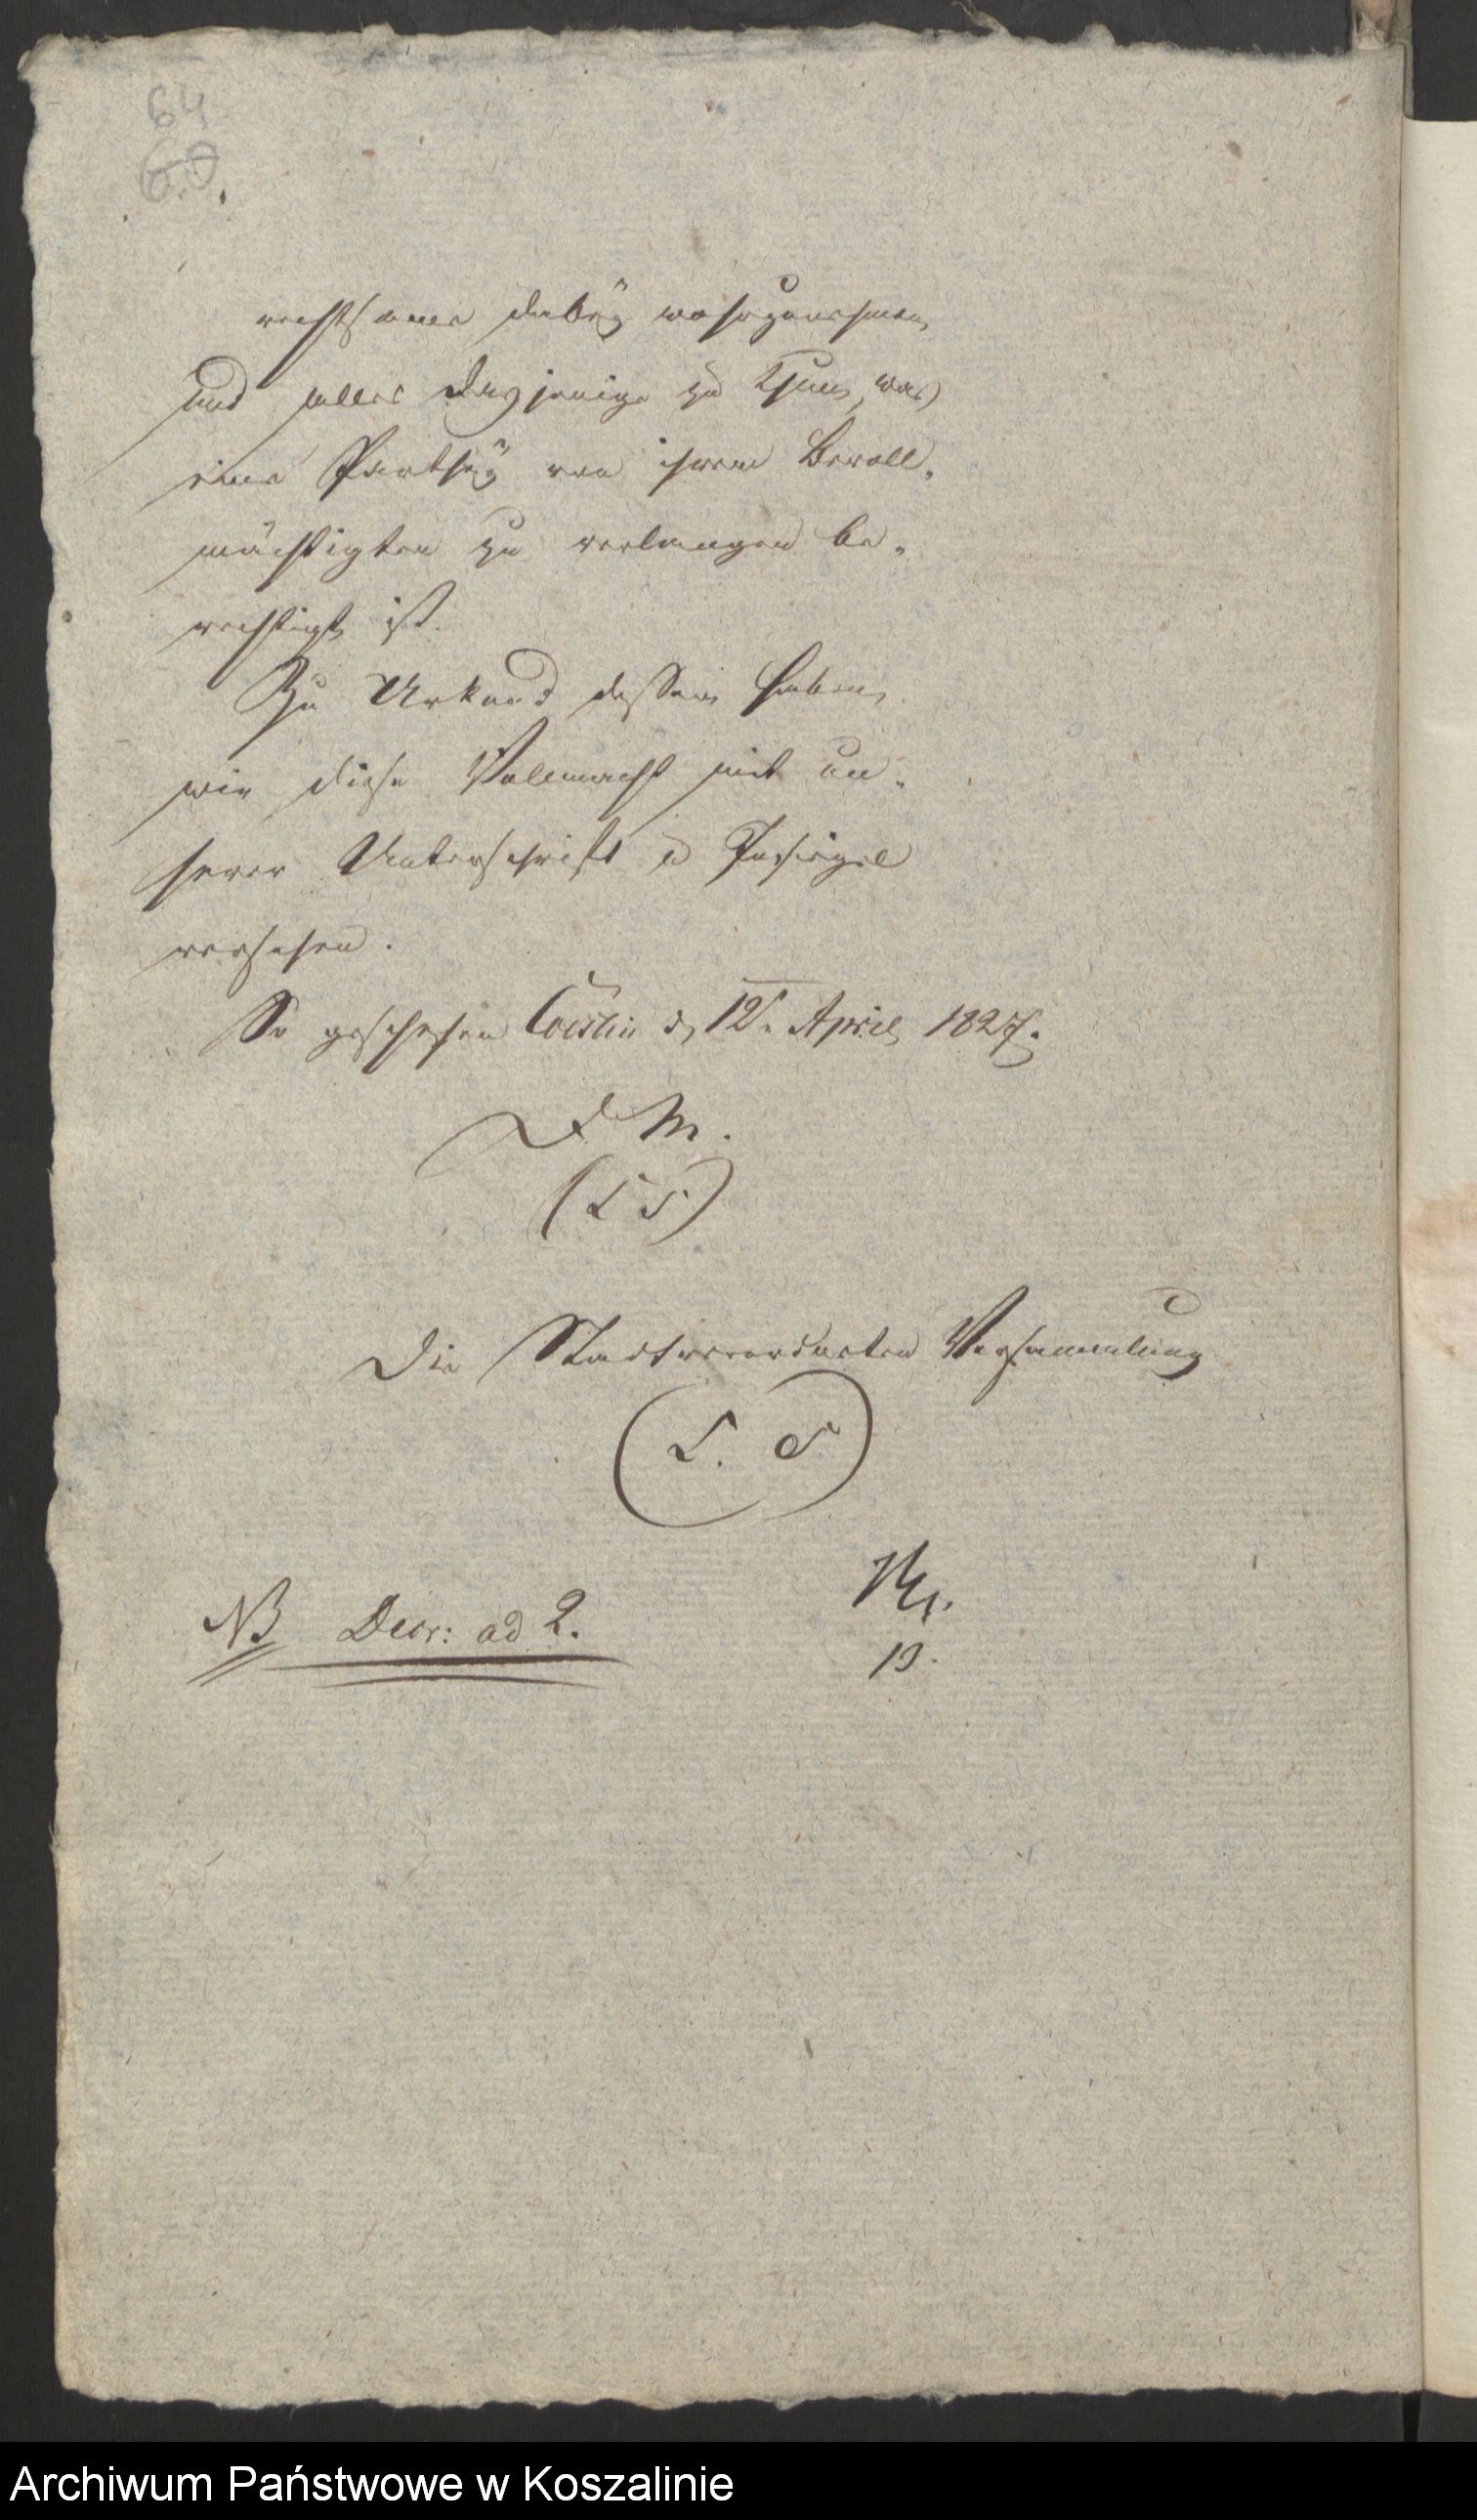 64
60.
rechtsame dabey wahrzunehmen
und alles dasjenige zu thun, was
eine Parthey von ihrem Bevoll,
mächtigten zu verlangen be,
rechtigt ist.
Zu Urkund dessen haben
wir diese Vollmacht mit un,
serer Unterschrift u Insiegel
versehen.
So geschehen Cöslin d 12t. April 1827.
D. M.
(L S)
Die Stadtverordneten Versammlung
(L. S)
NB Decr: ad 2.
13.
Archiwum Państwowe w Koszalinie